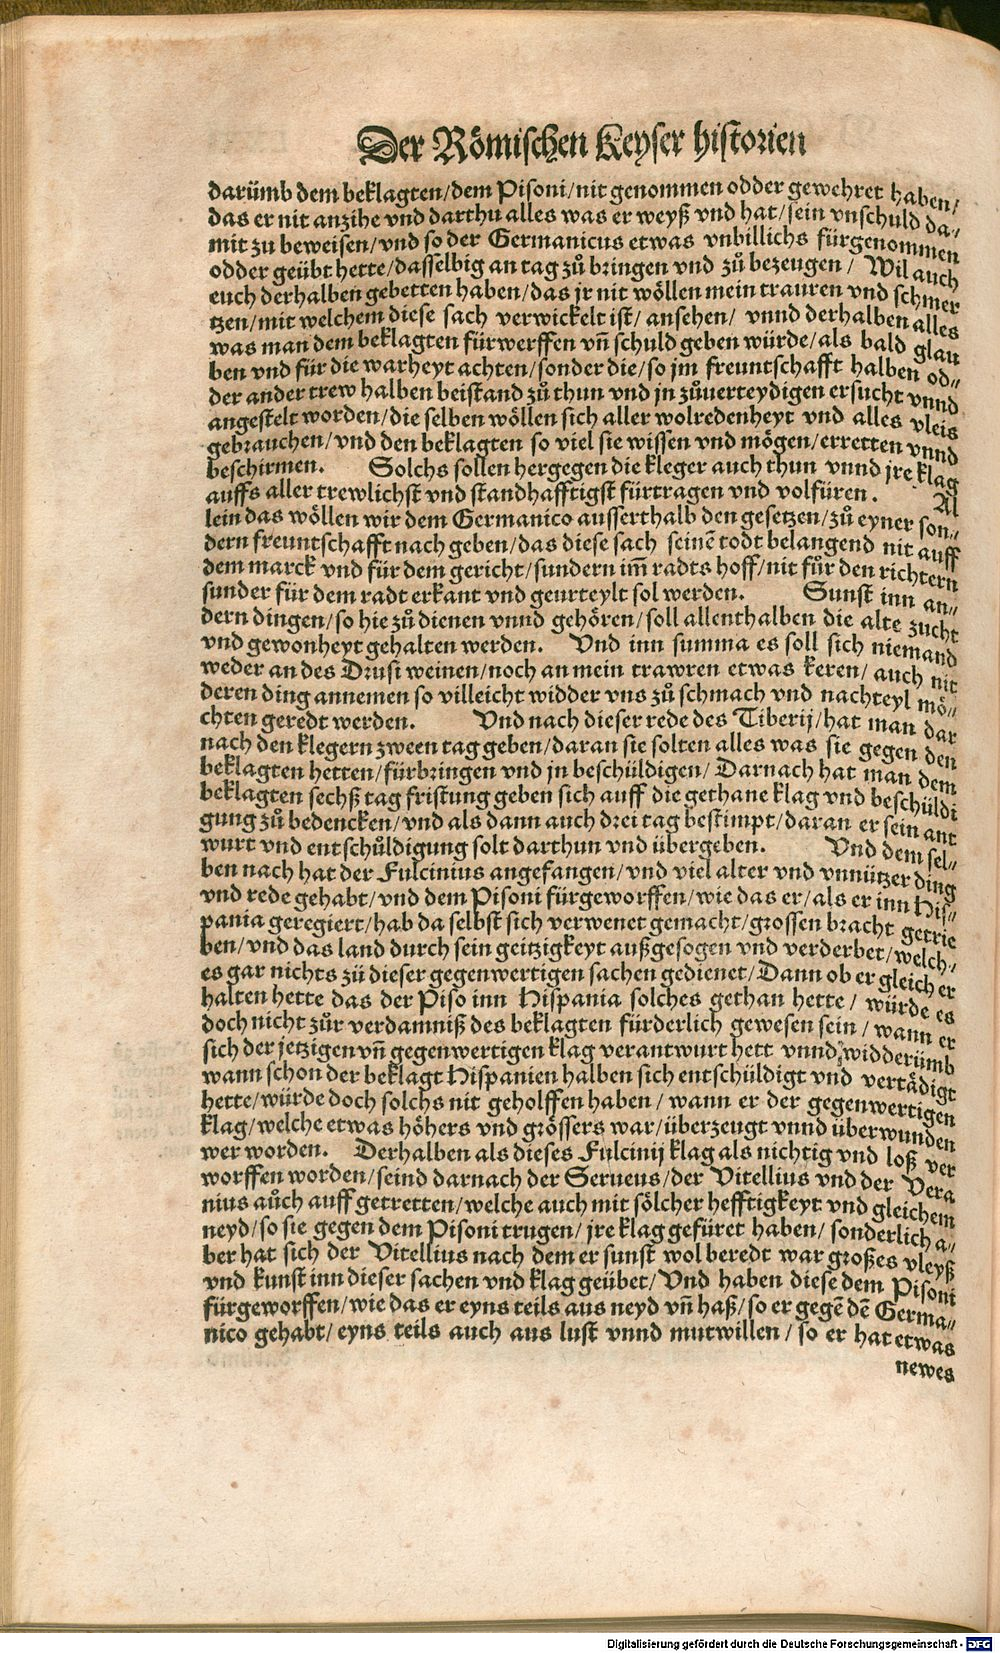 Der Römischen Keyser historien
darümb dem beklagten/dem Pisoni/nit genommen odder gewehret haben/
das er nit anzihe vnd darthu alles was er weyß vnd hat/sein vnschuld da⸗
mit zu beweisen/vnd so der Germanicus etwas vnbillichs fürgenommen
odder geübt hette/dasselbig an tag zů bringen vnd zů bezeugen/ Wil auch
euch derhalben gebetten haben/das jr nit wöllen mein trauren vnd schmer
tzen/mit welchem diese sach verwickelt ist/ ansehen/ vnnd derhalben alles
was man dem beklagten fürwerffen vn̄ schuld geben würde/als bald glau
ben vnd für die warheyt achten/sonder die/so jm freuntschafft halben od⸗
der ander trew halben beistand zů thun vnd jn zůuerteydigen ersucht vnnd
angestelt worden/die selben wöllen sich aller wolredenheyt vnd alles vleis
gebrauchen/vnd den beklagten so viel sie wissen vnd mögen/erretten vnnd
beschirmen. Solchs sollen hergegen die kleger auch thun vnnd jre klag
auffs aller trewlichst vnd standhafftigst fürtragen vnd volfüren. Al
lein das wöllen wir dem Germanico ausserthalb den gesetzen/zů eyner son⸗
dern freuntschafft nach geben/das diese sach seinē todt belangend nit auff
dem marck vnd für dem gericht/sundern im̄ radts hoff/nit für den richtern
sunder für dem radt erkant vnd geurteylt sol werden. Sunst inn an⸗
dern dingen/so hie zů dienen vnnd gehören/soll allenthalben die alte zucht
vnd gewonheyt gehalten werden. Vnd inn summa es soll sich niemand
weder an des Drusi weinen/noch an mein trawren etwas keren/ auch nit
deren ding annemen so villeicht widder vns zů schmach vnd nachteyl mö⸗
chten geredt werden. Vnd nach dieser rede des Tiberij/hat man dar
nach den klegern zween tag geben/daran sie solten alles was sie gegen den
beklagten hetten/fürbringen vnd jn beschüldigen/ Darnach hat man dem
beklagten sechß tag fristung geben sich auff die gethane klag vnd beschüldi
gung zů bedencken/vnd als dann auch drei tag bestimpt/daran er sein ant
wurt vnd entschůldigung solt darthun vnd übergeben. Vnd dem sel⸗
ben nach hat der Fulcinius angefangen/vnd viel alter vnd vnnützer ding
vnd rede gehabt/vnd dem Pisoni fürgeworffen/wie das er/als er inn His⸗
pania geregiert/hab da selbst sich verwenet gemacht/grossen bracht getrie
ben/vnd das land durch sein geitzigkeyt außgesogen vnd verderbet/welch⸗
es gar nichts zü dieser gegenwertigen sachen gedienet/Dann ob er gleich er
halten hette das der Piso inn Hispania solches gethan hette/ würde es
doch nicht zůr verdamniß des beklagten fürderlich gewesen sein/wann er
sich der jetzigen vn̄ gegenwertigen klag verantwurt hett vnnd widderümb
wann schon der beklagt Hispanien halben sich entschüldigt vnd vertädigt
hette/würde doch solchs nit geholffen haben/ wann er der gegenwertigen
klag/welche etwas höhers vnd grössers war/überzeugt vnnd überwunden
wer worden. Derhalben als dieses Fulcinij klag als nichtig vnd loß ver
worffen worden/seind darnach der Serueus/der Vitellius vnd der Vera
nius aůch auff getretten/welche auch mit sölcher hefftigkeyt vnd gleichem
neyd/so sie gegen dem Pisoni trugen/ jre klag gefüret haben/ sonderlich a⸗
ber hat sich der Vitellius nach dem er sunst wol beredt war großes vleyß
vnd kunst inn dieser sachen vnd klag geübet/Vnd haben diese dem Pisoni
fürgeworffen/wie das er eyns teils aus neyd vn̄ haß/so er gegē dē Germa⸗
nico gehabt/ eyns teils auch aus lust vnnd mutwillen/so er hat etwas
newes
Digitalisierung gefördert durch die Deutsche Forschungsgemeinschaft - DFG